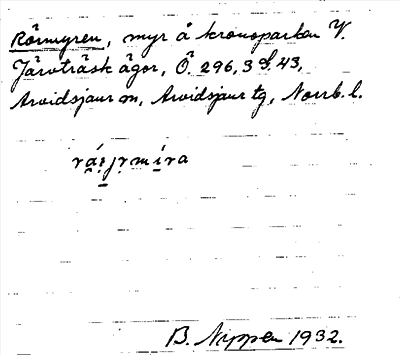 Rörmyren, myr å kronoparken V.
Järvträsk ägor, Ö. 296, 3 d. 43,
Arvidsjaur sn, Arvidsjaur tg, Norrb. l.
B. Nippen 1932.